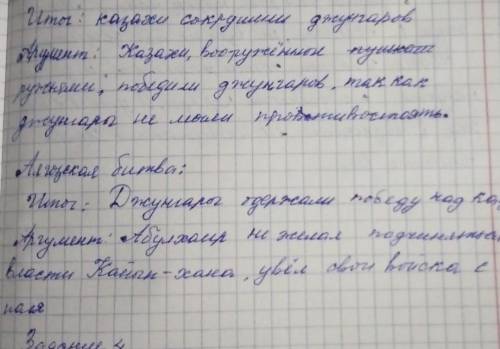 Итог: казахи сокрушили джунгаров
Аргумент: Казахи, вооружённые пушками
ружьями, победили джунгаров, так как
джунгары не могли противостоять.
Аягозская битва:
Итог: Джунгары одержали победу над ка
Аргумент: Абулхаир не желая подчиняться
власти Кайып-хана, увёл свои войска с
поля
Задание 4